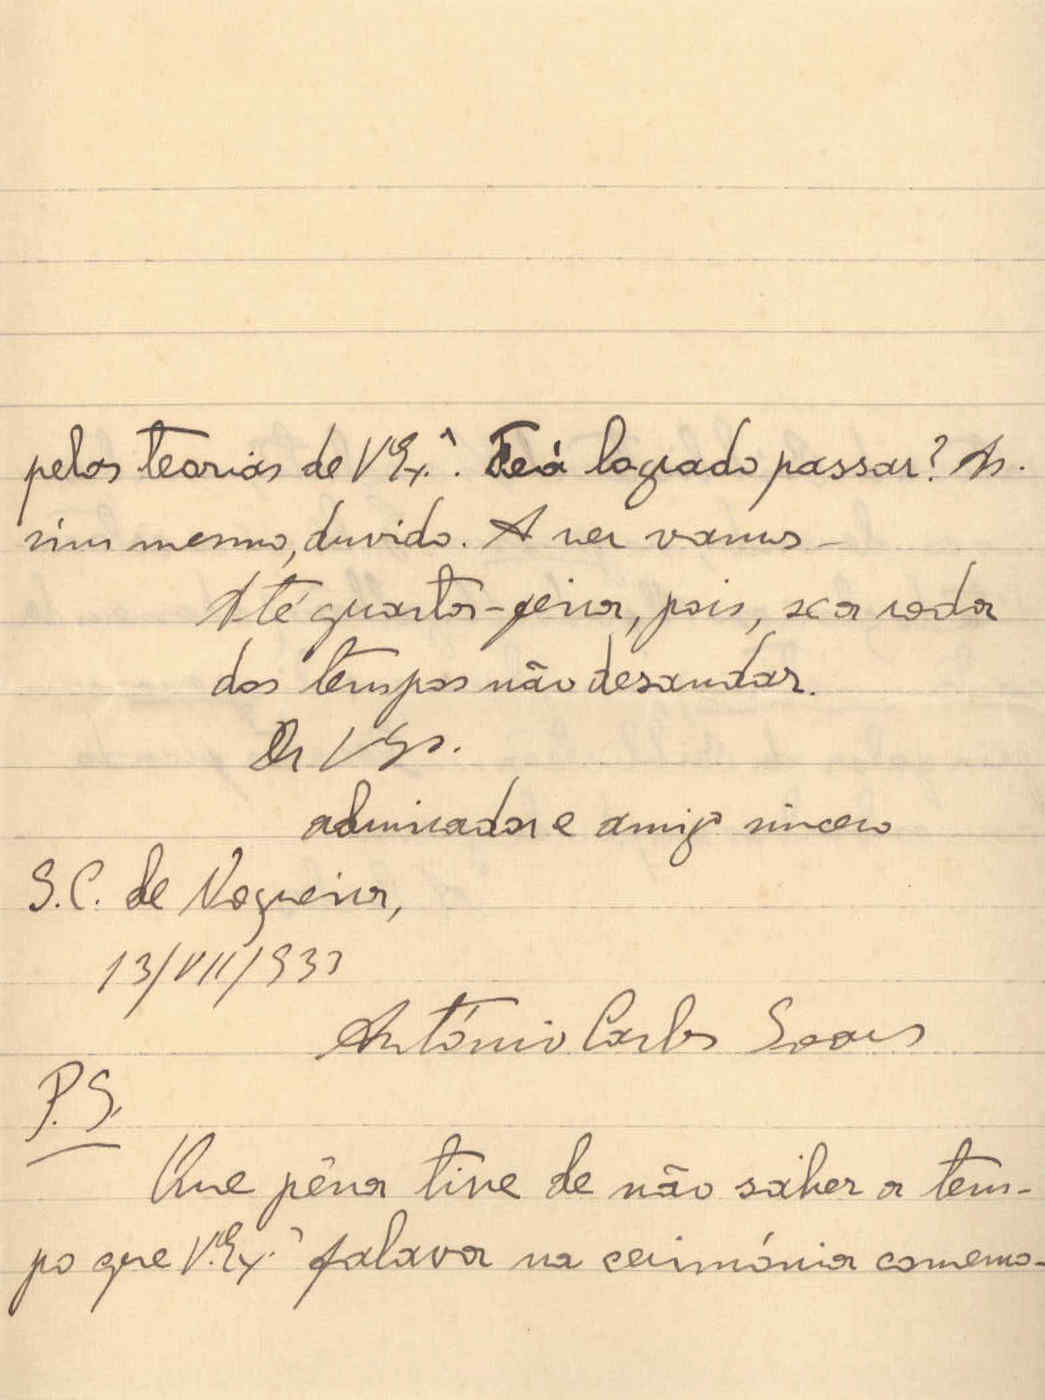 pelas teorias de V. Ex.ª. Terá logrado passar? As-
sim mesmo, duvido. A ver vamos –
Até quarta-feira, pois, se a roda
dos tempos não desandar.
De V. Ex.
admirador e amigo sincero
S.C. de Nogueira,
13/VII/933
António Carlos Soares
P.S.
Que pêna tive de não saber a tem-
po que V. Ex.ª falava na cerimónia comemo-